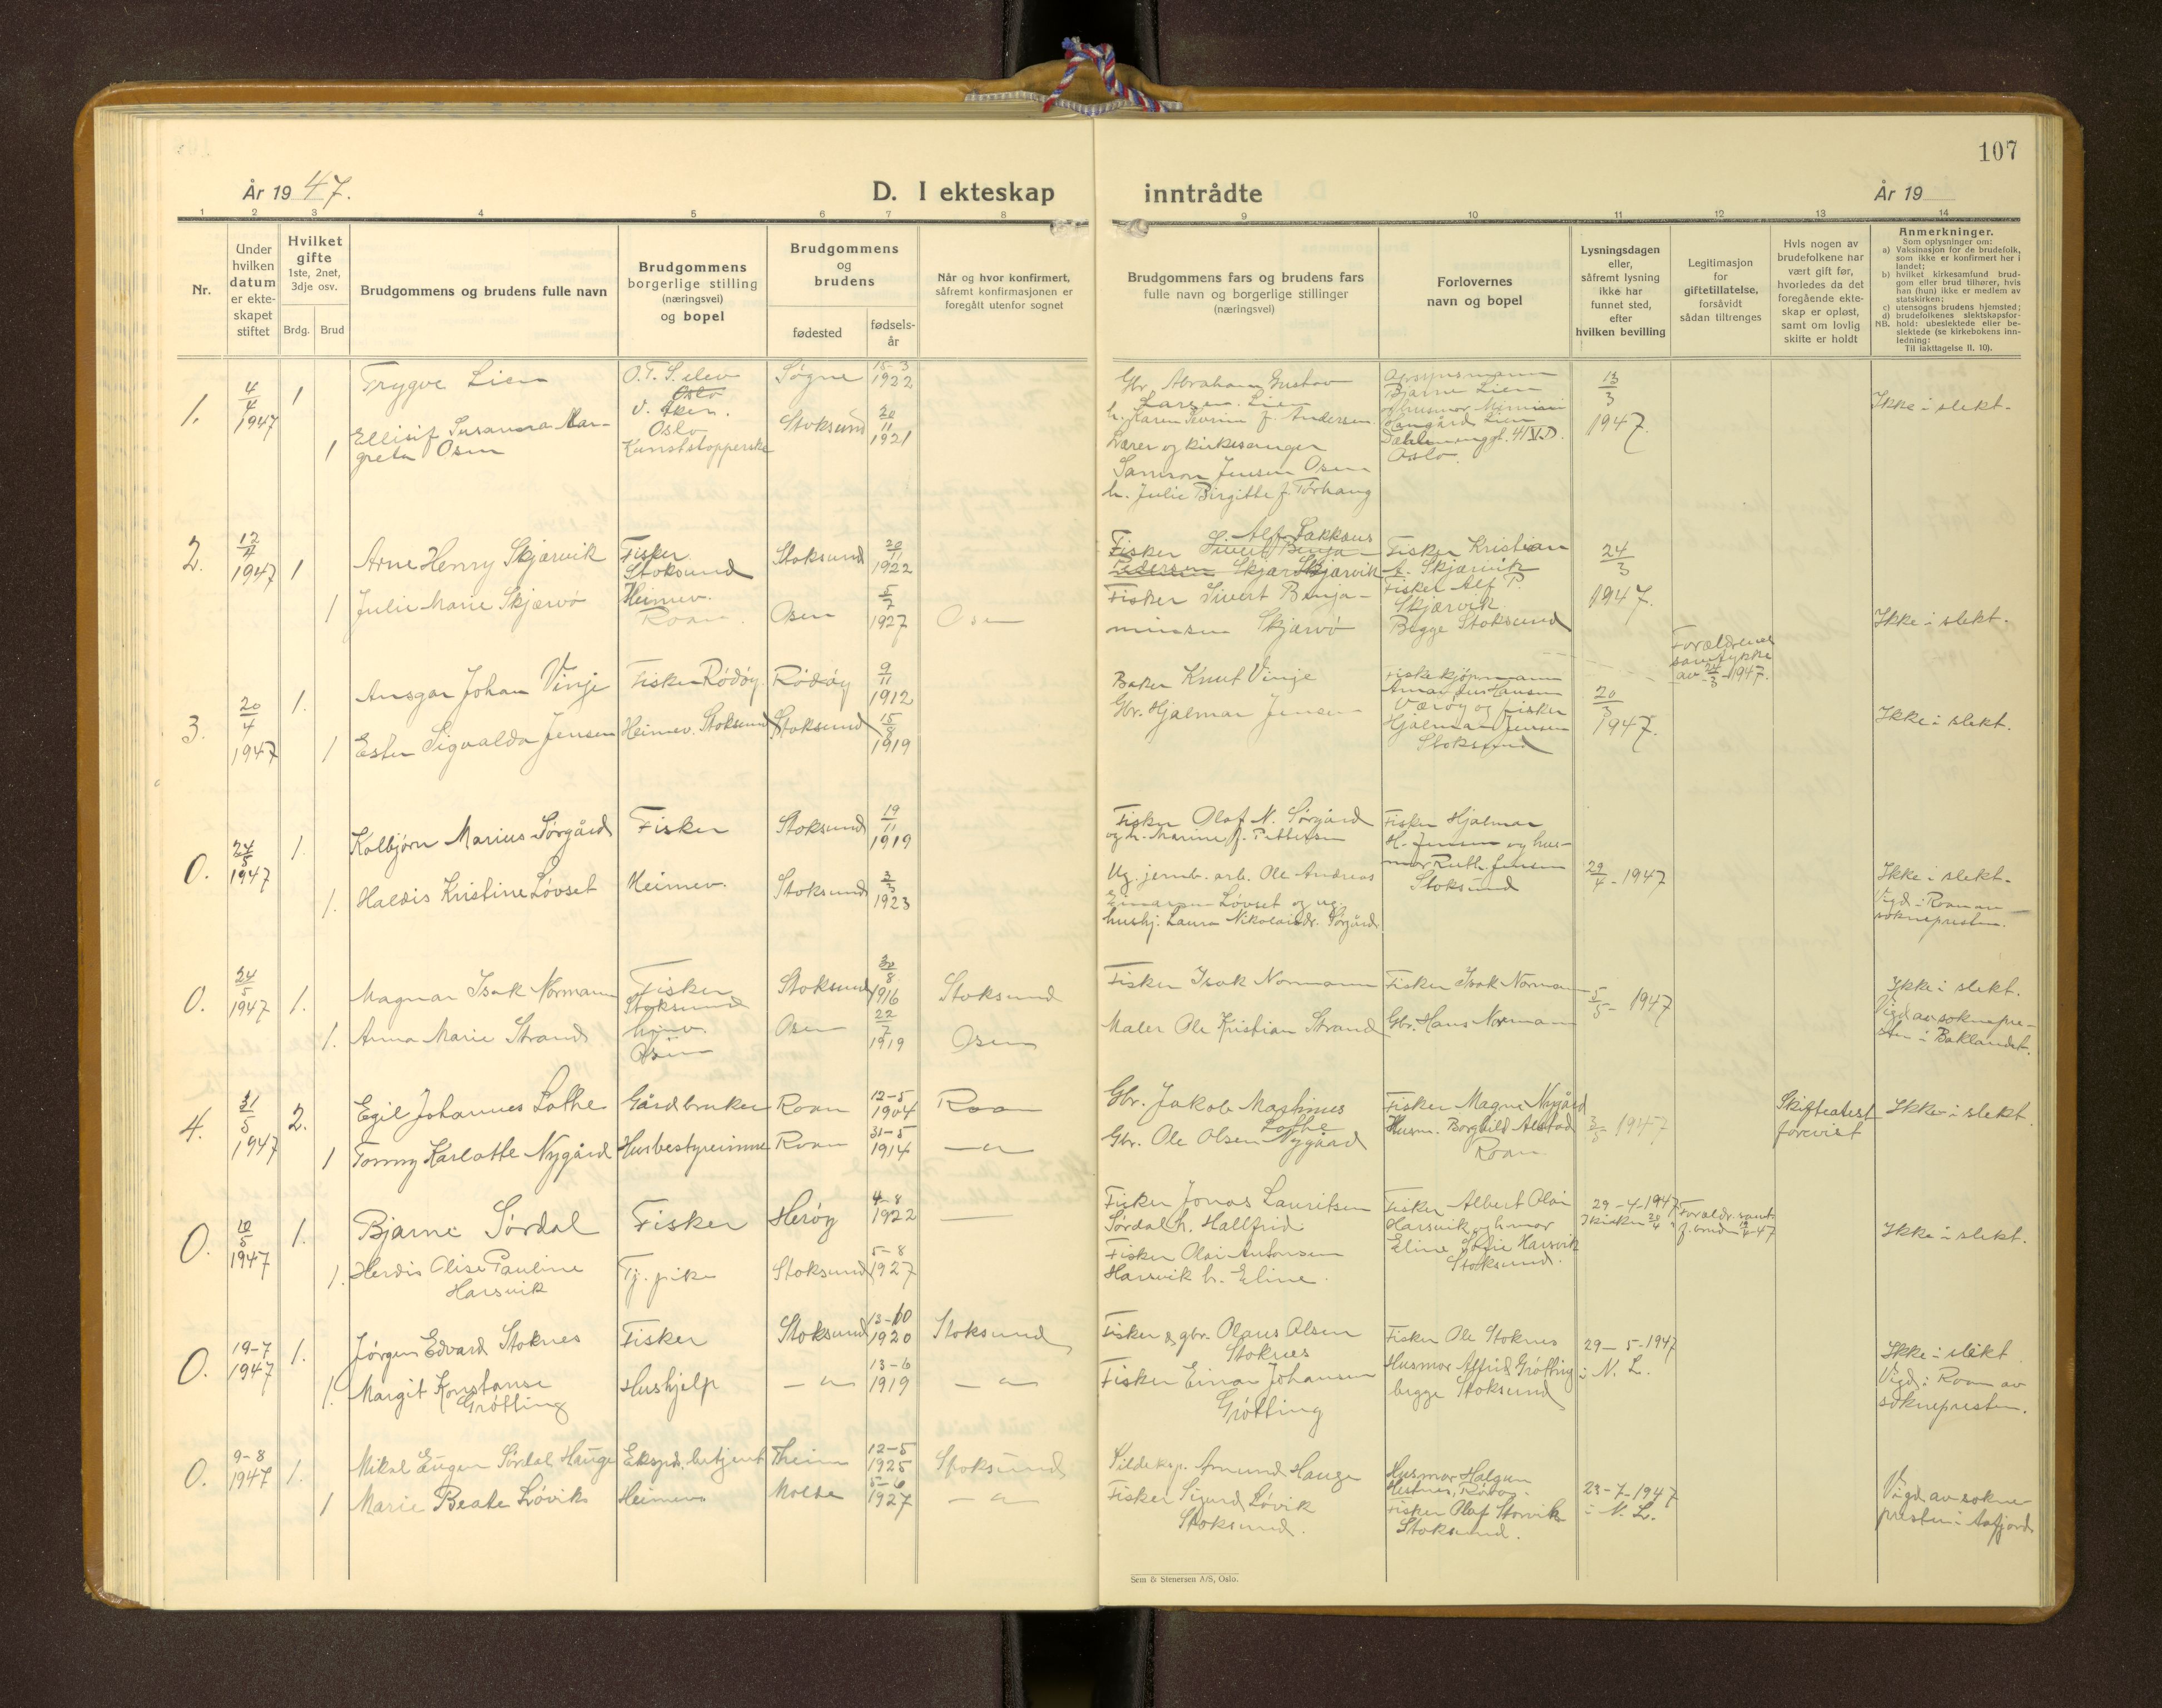 107
År 1947.
D. I ekteskap inntrådte
År 19
1 2 3 4 5 6 7 8 9 10 11 12 13 14
Nr.
Under
hvilken
datum
er ekte-
skapet
stiftet
Hvilket
gifte
1ste, 2net,
3dje osv.
Brdg. Brud
Brudgommens og brudens fulle navn
Brudgommens
borgerlige stilling
(næringsvei)
og bopel
Brudgommens
og
brudens
fødested
fødsels-
år
Når og hvor konfirmert,
såfremt konfirmasjonen er
foregått utenfor sognet
Brudgommens fars og brudens fars
fulle navn og borgerlige stillinger
(næringsvei)
Forlovernes
navn og bopel
Lysningsdagen
eller,
såfremt lysning
ikke har
funnet sted,
efter
hvilken bevilling
Legitimasjon
for
giftetillatelse,
forsåvidt
sådan tiltrenges
Hvis nogen av
brudefolkene har
vært gift før,
hvorledes da det
foregående ekte-
skap er opløst,
samt om lovlig
skifte er holdt
Anmerkninger.
Som oplysninger om:
a) Vaksinasjon for de brudefolk,
som ikke er konfirmert her i
landet;
b) hvilket kirkesamfund brud-
gom eller brud tilhører, hvis
han (hun) ikke er medlem av
statskirken;
c) utensogns brudens hjemsted;
d) brudefolkenes slektskapsfor-
NB. hold: ubeslektede eller be-
slektede (se kirkebokens inn-
ledning:
Til iakttagelse II. 10).
1.
4/4
1947
1
Trygve Lien
O.T.S. elev
Oslo
V. Aker.
Søgne
18-3
1922
1
Ellisif Susanna Mar-
greta Osen
Oslo
Kunststopperske
Stoksund
20/11
1921
Gbr. Abraham Gustav
Larsen Lien
h. Karen Severine f. Andersen
Lærer og kirkesanger
Samson Jensen Osen
h. Julie Birgitte f. Torhaug
Opsynsmann
Bjarne Lien
og husmor
Lien
41 VI D.
Oslo.
13/3
1947.
Ikke i slekt.
2.
12/4
1947
1
Arne Henry Skjærvik
Fisker
Stoksund
Stoksund
20/11
1922
1
Julie Marie Skjærvø
Heimev.
Roan.
Osen
5/7
1927
Osen
Alf
Fisker Sivert Benja-
Pedersen Skjær Skjærvik
Fisker Sivert Benja-
minsen Skjærvø
Fisker Kristian
A. Skjærvik
Fisker Alf P.
Skjærvik
Begge Stoksund
24/3
1947.
Foreldrenes
samtykke
av 24/3-1947.
Ikke i slekt.
3.
20/4
1947
1.
Ansgar Johan Vinje
Fisker Rödöy.
Rödöy
9/11
1912
1
Ester Sigvalda Jensen
Heimev. Stoksund
Stoksund
15/8
1919
Baker Knut Vinje
Gbr. Hjalmar Jensen
Fiskekjøpmann
Hansen
Værøy og fisker
Hjalmar Jensen
Stoksund
20/3
1947.
Ikke i slekt.
0.
24/5
1947
1.
Kolbjørn Marius Sørgård
Fisker
Stoksund
19/11
1919
1.
Haldis Kristine Løvset
Heimev.
Stoksund
3/3
1923
Fisker Olaf N. Sørgård
og h. Marine f. Pettersen
Ug. jernb. arb. Ole Andreas
Einarsen Løvset og ug.
hushj. Laura Nikolaisdr. Sørgård
Fisker Hjalmar
H. Jensen og hus-
mor Ruth Jensen
Stoksund
29/4-1947
Ikke i slekt.
Vigd i Roan av
soknepresten.
0.
24/5
1947
1.
Magnar Isak Normann
Fisker
Stoksund
Stoksund
30/8
1916
Stoksund
1.
Anna Marie Strand
hjmv.
Osen
Osen
22/7
1919
Osen
Fisker Isak Normann
Maler Ole Kristian Strand
Fisker Isak Normann
Gbr. Hans Normann
5/5-1947
Ikke i slekt.
Vigd av soknepre-
sten i Baklandet.
4.
31/5
1947
2.
Egil Johannes Lothe
Gårdbruker
Roan
12-5
1904
Roan
1
Tommy Karlotte Nygård
Husbestyrerinne
Roan
31-5
1914
—"—
Gbr. Jakob Martinus
Lothe
Gbr. Ole Olsen Nygård
Fisker Magne Nygård
Husm. Borghild Alstad
Roan
3/5 1947
Skifteattest
forevist
Ikke i slekt
0.
10/5
1947
1.
Bjarne Sørdal
Fisker
Herøy
4-8
1922
—
1.
Herdis Alise Pauline
Harsvik
Tj. pike
Stoksund
5-8
1927
Fisker Jonas Lauritsen
Sørdal h. Hallfrid
Fisker Olai Antonsen
Harsvik h. Eline.
Fisker Albert Olai
Harsvik og h.mor
Eline Sofie Harsvik
Stoksund.
29-4-1947
Foreldr. samt.
f. bruden 47
Ikke i slekt.
0.
19-7
1947
1.
Jørgen Edvard Stoknes
Fisker
Stoksund
13-10
1920
Stoksund
1.
Margit Konstanse
Grøtting
Hushjelp
—"—
13-6
1919
—"—
Fisker & gbr. Olaus Olsen
Stoknes
Fisker Einar Johansen
Grøtting
Fisker Ole Stoknes
Husmor Alfrid Grøtting
begge Stoksund
29-5-1947
i N. L.
Ikke i slekt
Vigd i Roan av
soknepresten.
0.
9-8
1947
1.
Mikal Eugen Sørdal Hauge
Eksped. betjent
12-5
1925
Stoksund
1
Marie Beate Løvik
Heimev
Molde
5-6
1927
—"—
Sildeksp. Amund Hauge
Fisker Sigurd Løvik
Stoksund.
Husmor Halgun
Hestnes,
Fisker Olaf Storvik
Stoksund.
23-7-1947
i N. L.
Vigd av sokne-
presten i Aafjord
Sem & Stenersen A/S, Oslo.